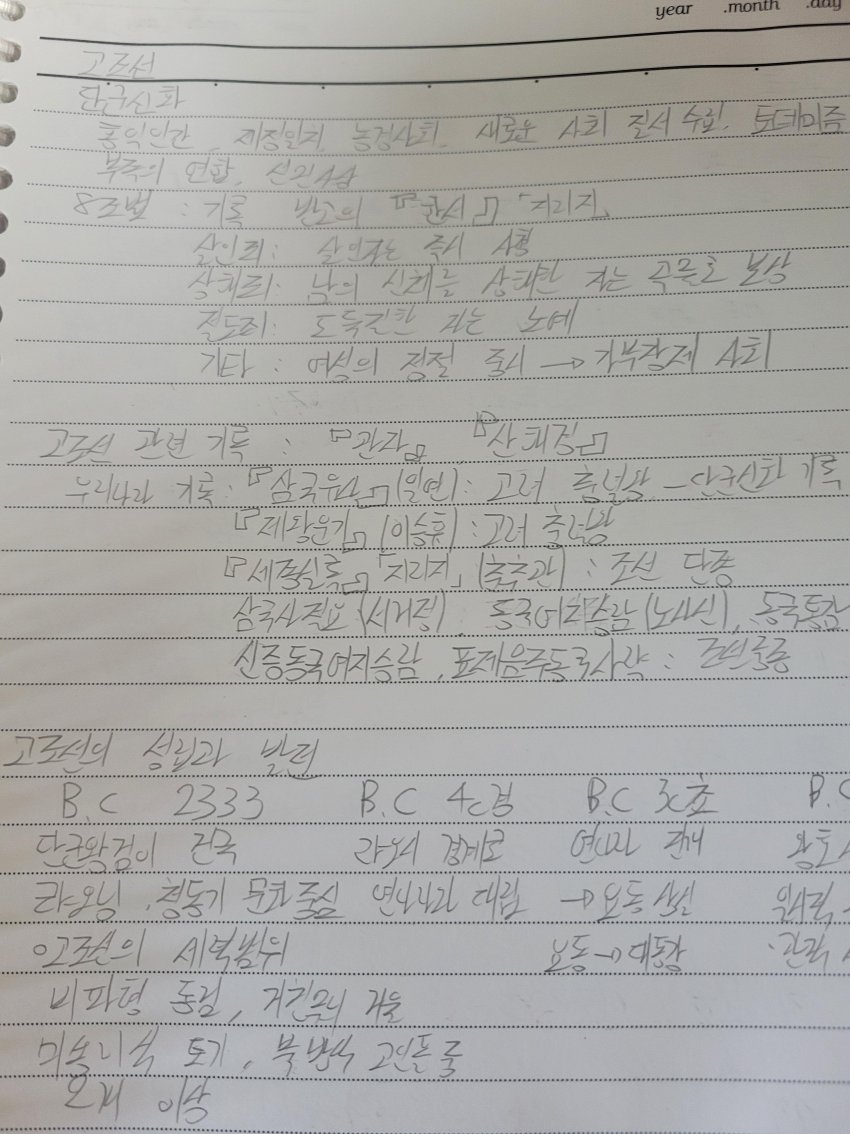 year .month .day
고조선
단군신화
홍익인간, 제정일치, 농경사회, 새로운 사회 질서 수립, 토테미즘
부족의 연합, 선민사상
8조법 : 기록 반고의 『한서』 「지리지」
살인죄: 살인자는 즉시 사형
상해죄: 남의 신체를 상해한 자는 곡물로 보상
절도죄: 도둑질한 자는 노예
기타 : 여성의 정절 중시 → 가부장제 사회
고조선 관련 기록 : 『관자』 『산해경』
우리나라 기록: 『삼국유사』(일연): 고려 충렬왕 - 단군신화 기록
『제왕운기』 (이승휴) : 고려 충렬왕
『세종실록』 「지리지」 (춘추관) : 조선 단종
삼국사절요 (서거정), 동국여지승람 (노사신), 동국통감
신증동국여지승람, 표제음주동국사략 : 조선중종
고조선의 성립과 발전
B.C 2333 B.C 4c경 B.C 3c초 B.C
단군왕검이 건국 랴오시 경계로 연나라 진개
랴오닝, 청동기 문화 중심 연나라 대립 → 요동 상실
○고조선의 세력범위 요동→대동강
비파형 동검, 거친무늬 거울
미송리식 토기, 북방식 고인돌 중
2개 이상